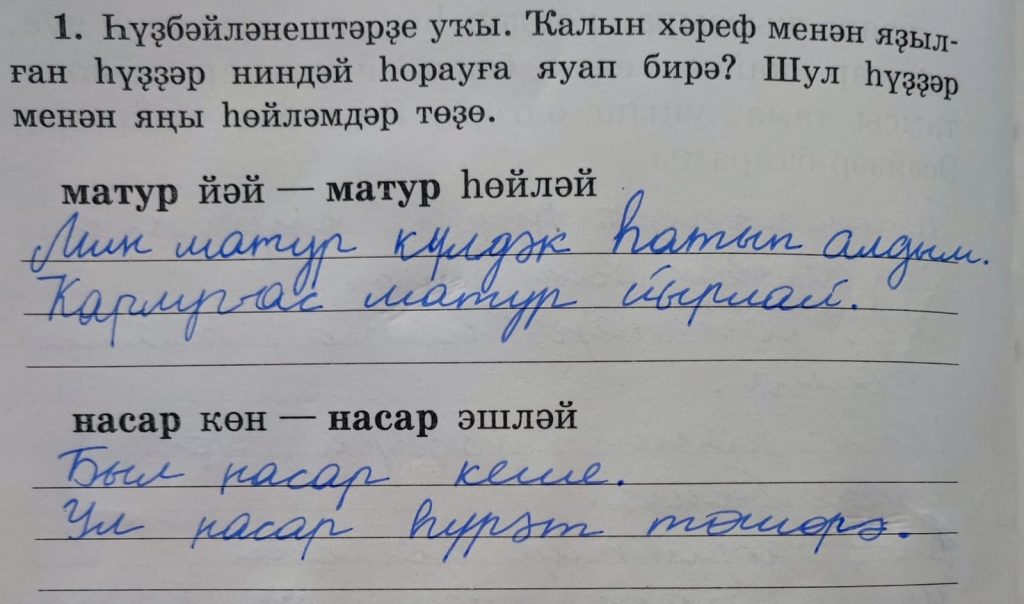 1. Һүҙбәйләнештәрҙе уҡы. Ҡалын хәреф менән яҙыл-
ған һүҙҙәр ниндәй һорауға яуап бирә? Шул һүҙҙәр
менән яңы һөйләмдәр төҙө.
матур йәй — матур һөйләй
Мин матур күлдәк һатып алдым.
Ҡарлуғас матур йырлай.
насар көн — насар эшләй
Был насар кеше.
Ул насар һүрәт төшөрә.